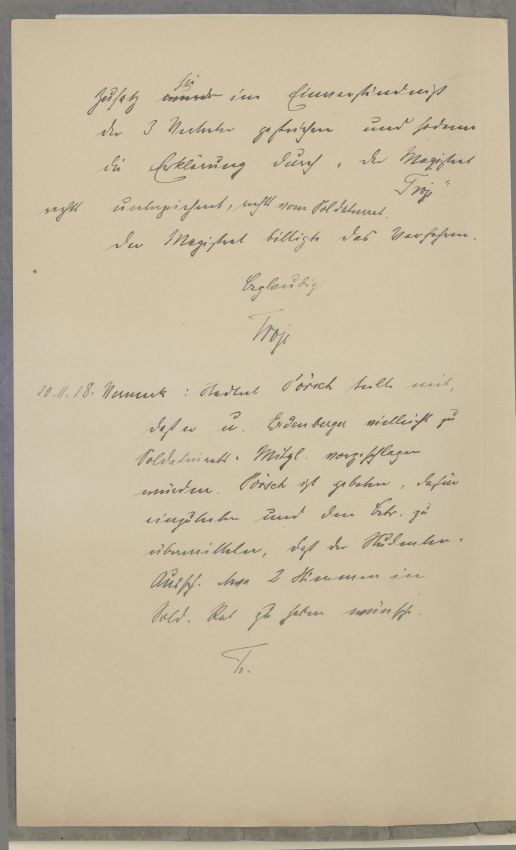 Zusatz im Einverständnis
der 3 Vertreter gestrichen und sodann
die Erklärung durch „Der Magistrat
Troje“
rechts unterzeichnet, rechts vom Soldatenrat.
Der Magistrat billigte das Verfahren.
Beglaubigt
Troje
10.11.18. Vermerk: Stadtrat Pörsch teilte mit,
daß er u. Erdenberger vielleicht zu
Soldatenrats-Mitgl. vorgeschlagen
würden. Pörsch ist gebeten, dafür
einzutreten und den Betr. zu
übermitteln, daß der Studenten-
Aussch. etwa 2 Stimmen im
Sold. Rat zu haben wünsche.
Tr.